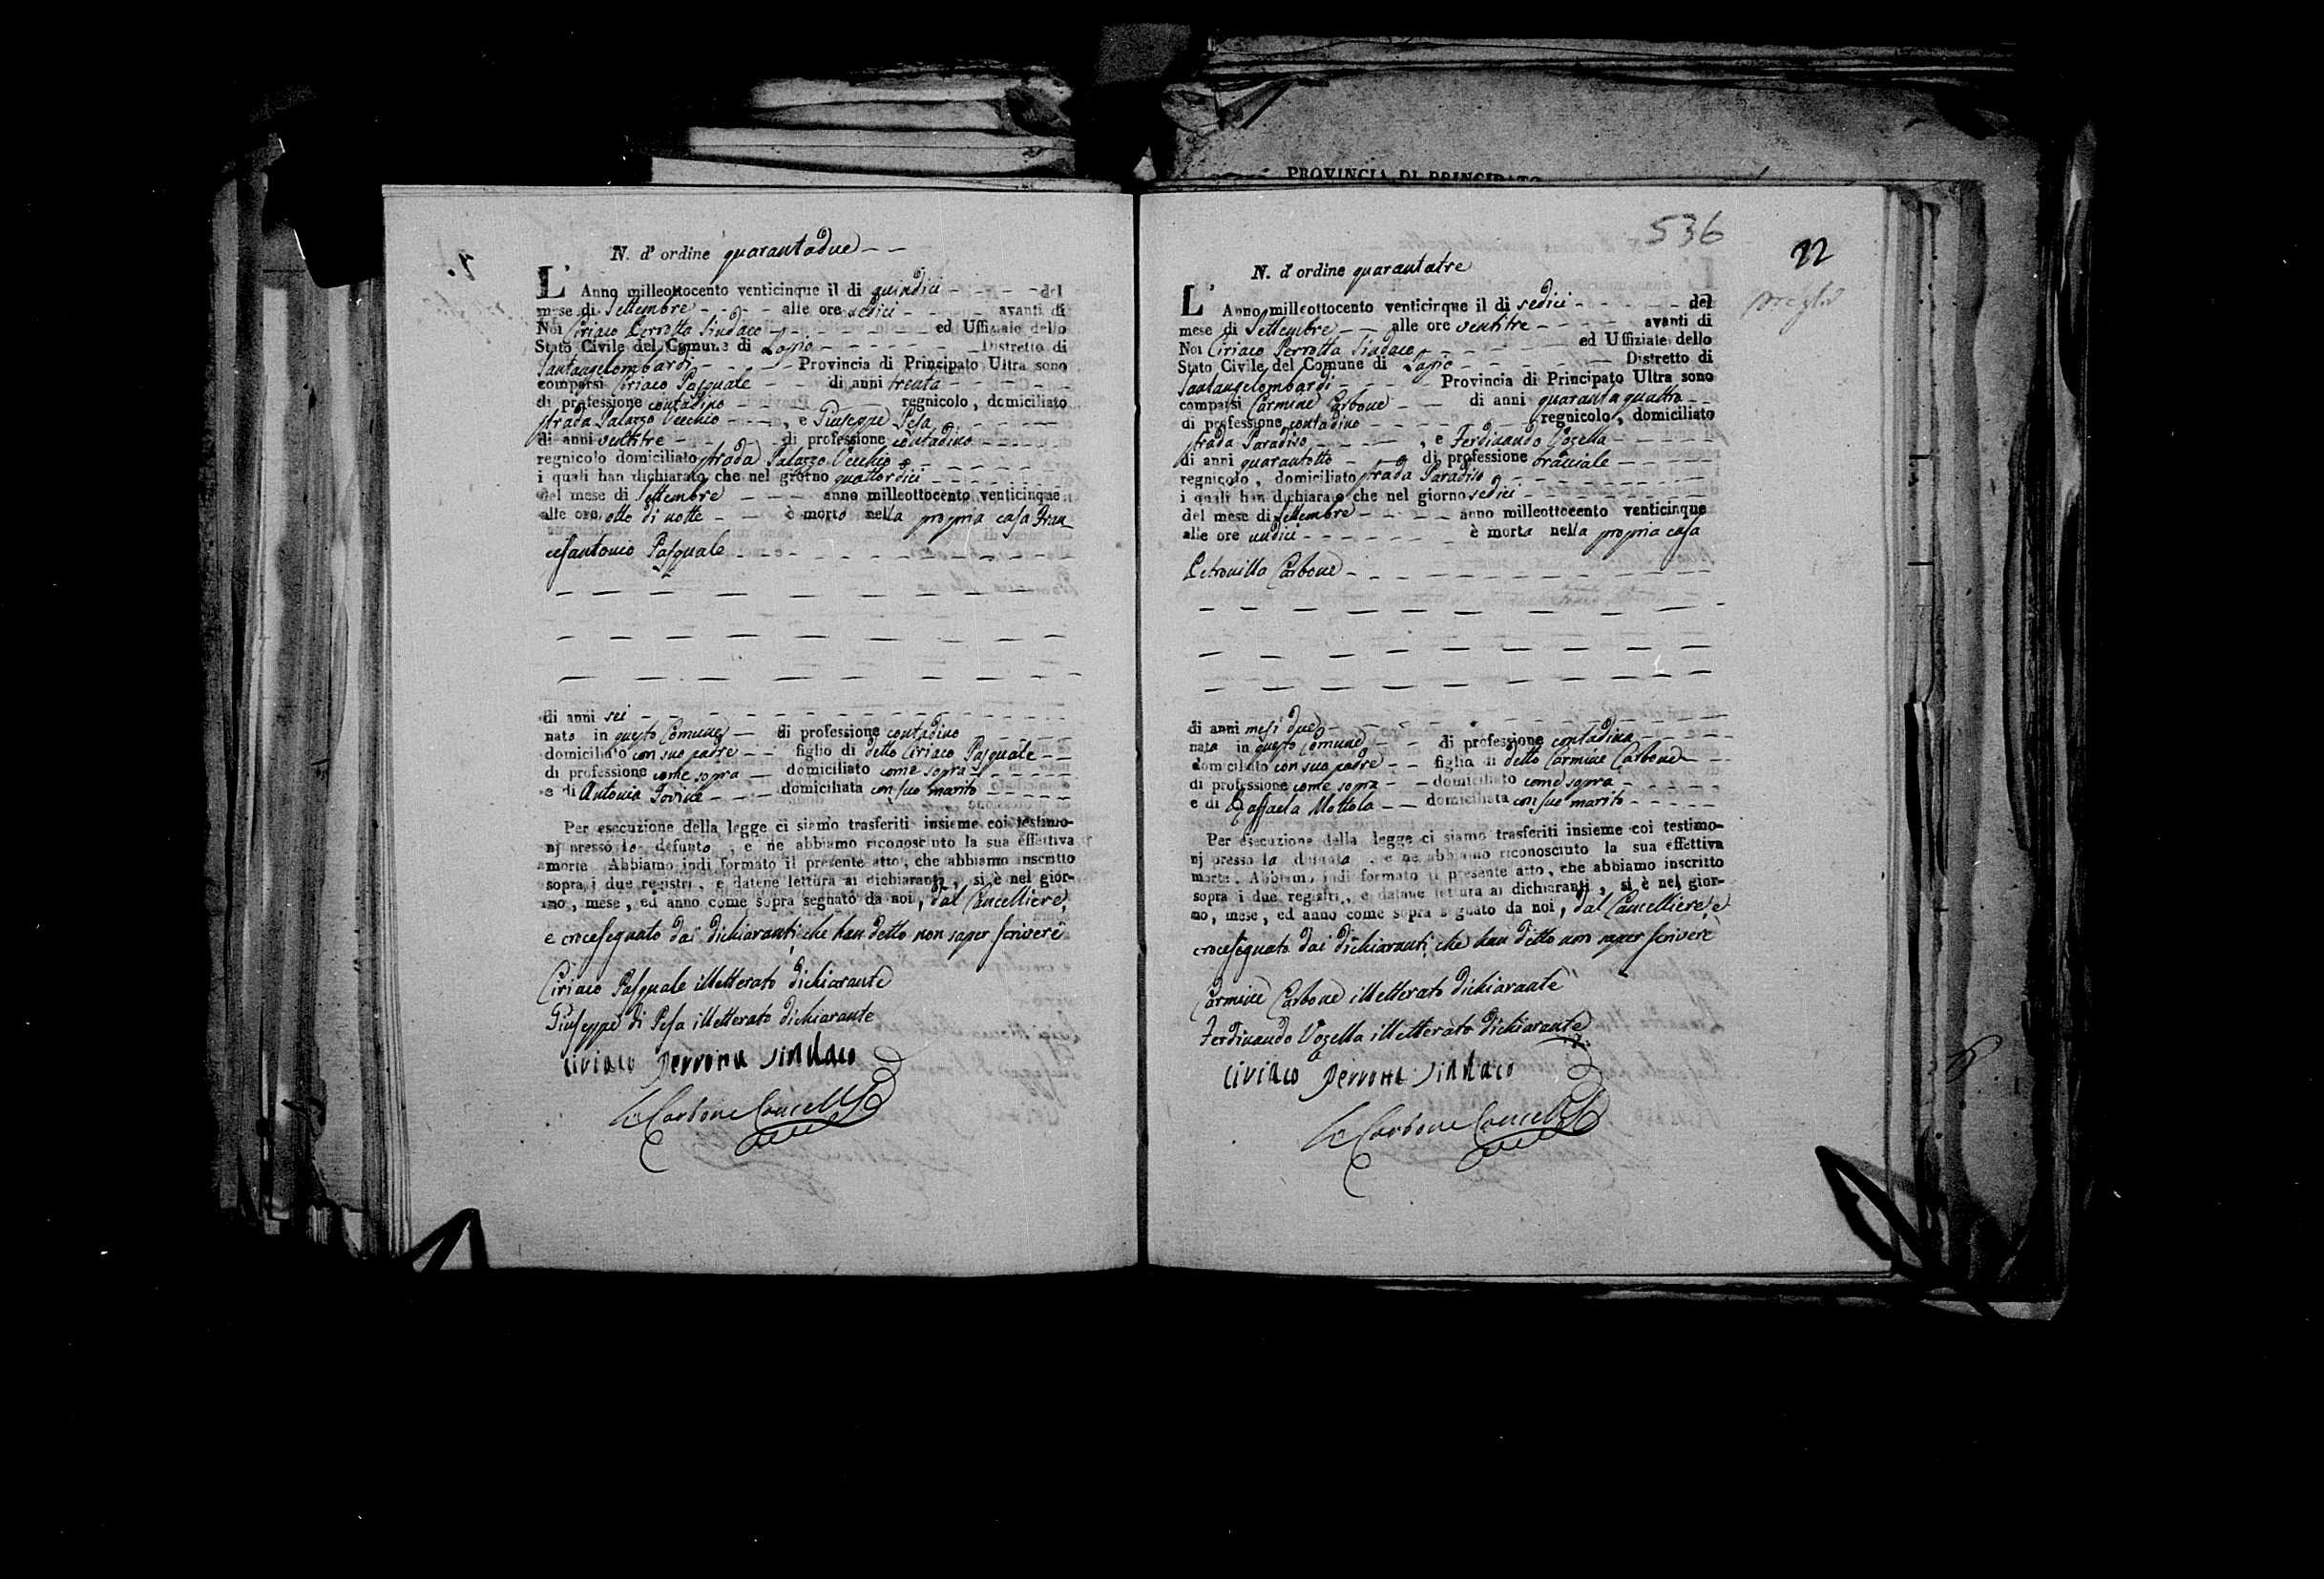 PROVINCIA DI PRINCIPATO
N. d' ordine quarantadue
L' Anno milleottocento venticinque il di quindici del
mese di Settembre alle ore sedici avanti di
Noi Ciriaco Perrotta Sindaco ed Uffiziale dello
Stato Civile del Comune di Lapio Distretto di
Santangelombardi Provincia di Principato Ultra sono
comparsi Ciriaco Pasquale di anni trenta
di professione contadino regnicolo, domiciliato
strada Palazzo Vecchio, e Giuseppe Pesa
di anni ventitre di professione contadino
regnicolo domiciliato strada Palazzo Vecchio
i quali han dichiarato, che nel giorno quattordici
del mese di Settembre anno milleottocento venticinque
alle ore otto di notte è morto nella propria casa Fran
cesantonio Pasquale
di anni sei
nato in questo Comune di professione contadino
domiciliato con suo padre figlio di detto Ciriaco Pasquale
di professione come sopra domiciliato come sopra
e di Antonia Iovine domiciliata con suo marito
Per esecuzione della legge ci siamo trasferiti insieme coi testimo-
nj presso lo defunto, e ne abbiamo riconosciuto la sua effettiva
morte. Abbiamo indi formato il presente atto, che abbiamo inscritto
sopra i due registri, e datene lettura ai dichiaranti, si è nel gior-
no, mese, ed anno come sopra segnato da noi, dal Cancelliere,
e crocesegnato dai dichiaranti, che han detto non saper scrivere
Ciriaco Pasquale illetterato dichiarante
Giuseppe di Pesa illetterato dichiarante
Ciriaco Perrotta Sindaco
Carbone Cancell
536
22
N. d' ordine quarantatre
L' Anno milleottocento venticinque il di sedici del
mese di Settembre alle ore ventitre avanti di
Noi Ciriaco Perrotta Sindaco ed Uffiziale dello
Stato Civile del Comune di Lapio Distretto di
Santangelombardi Provincia di Principato Ultra sono
comparsi Carmine Carbone di anni quarantaquattro
di professione contadino regnicolo, domiciliato
strada Paradiso, e Ferdinando Vozella
di anni quarantotto di professione bracciale
regnicolo, domiciliato strada Paradiso
i quali han dichiarato che nel giorno sedici
del mese di Settembre anno milleottocento venticinque
alle ore undici è morta nella propria casa
Petronilla Carbone
di anni mesi due
nata in questo Comune di professione contadina
domiciliato con suo padre figlia di detto Carmine Carbone
di professione come sopra domiciliato come sopra
e di Raffaela Mottola domiciliata con suo marito
Per esecuzione della legge ci siamo trasferiti insieme coi testimo-
nj presso la defunta, e ne abbiamo riconosciuto la sua effettiva
morte. Abbiamo indi formato il presente atto, che abbiamo inscritto
sopra i due registri, e datane lettura ai dichiaranti, si è nel gior-
no, mese, ed anno come sopra segnato da noi, dal Cancelliere, e
crocesegnato dai dichiaranti, che han detto non saper scrivere
Carmine Carbone illetterato dichiarante
Ferdinando Vozella illetterato dichiarante
Ciriaco Perrotta Sindaco
Carbone Cancell